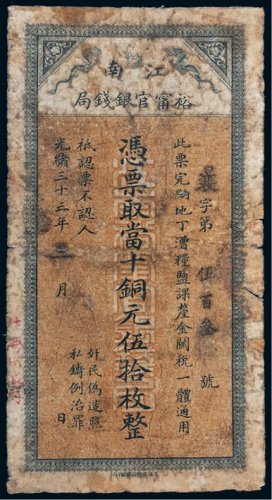 江南
裕甯官銀錢局
字第伍百叁號
此票完納地丁漕糧鹽課釐金關稅一體通用
憑票取當十銅元伍拾枚整
祇認票不認人
奸民偽造照
私鑄例治罪
光緒三十三年三月日